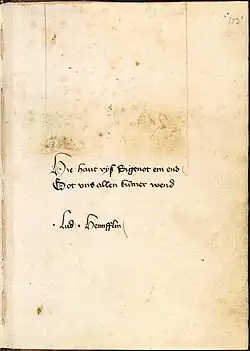 102
Hie haut vyss Sigenot ein end
Got vns allen kumer wend
· Lud · Henfflin